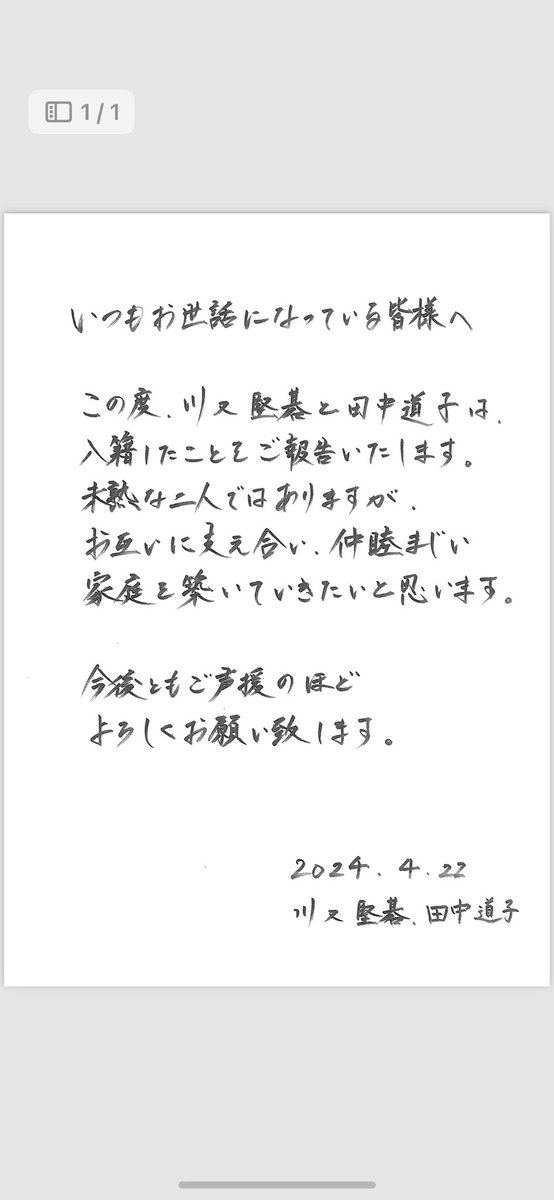 1/1
いつもお世話になっている皆様へ
この度、川又堅碁と田中道子は、
入籍したことをご報告いたします。
未熟な二人ではありますが、
お互いに支え合い、仲睦まじい
家庭を築いていきたいと思います。
今後ともご声援のほど
よろしくお願い致します。
2024.4.22
川又堅碁、田中道子